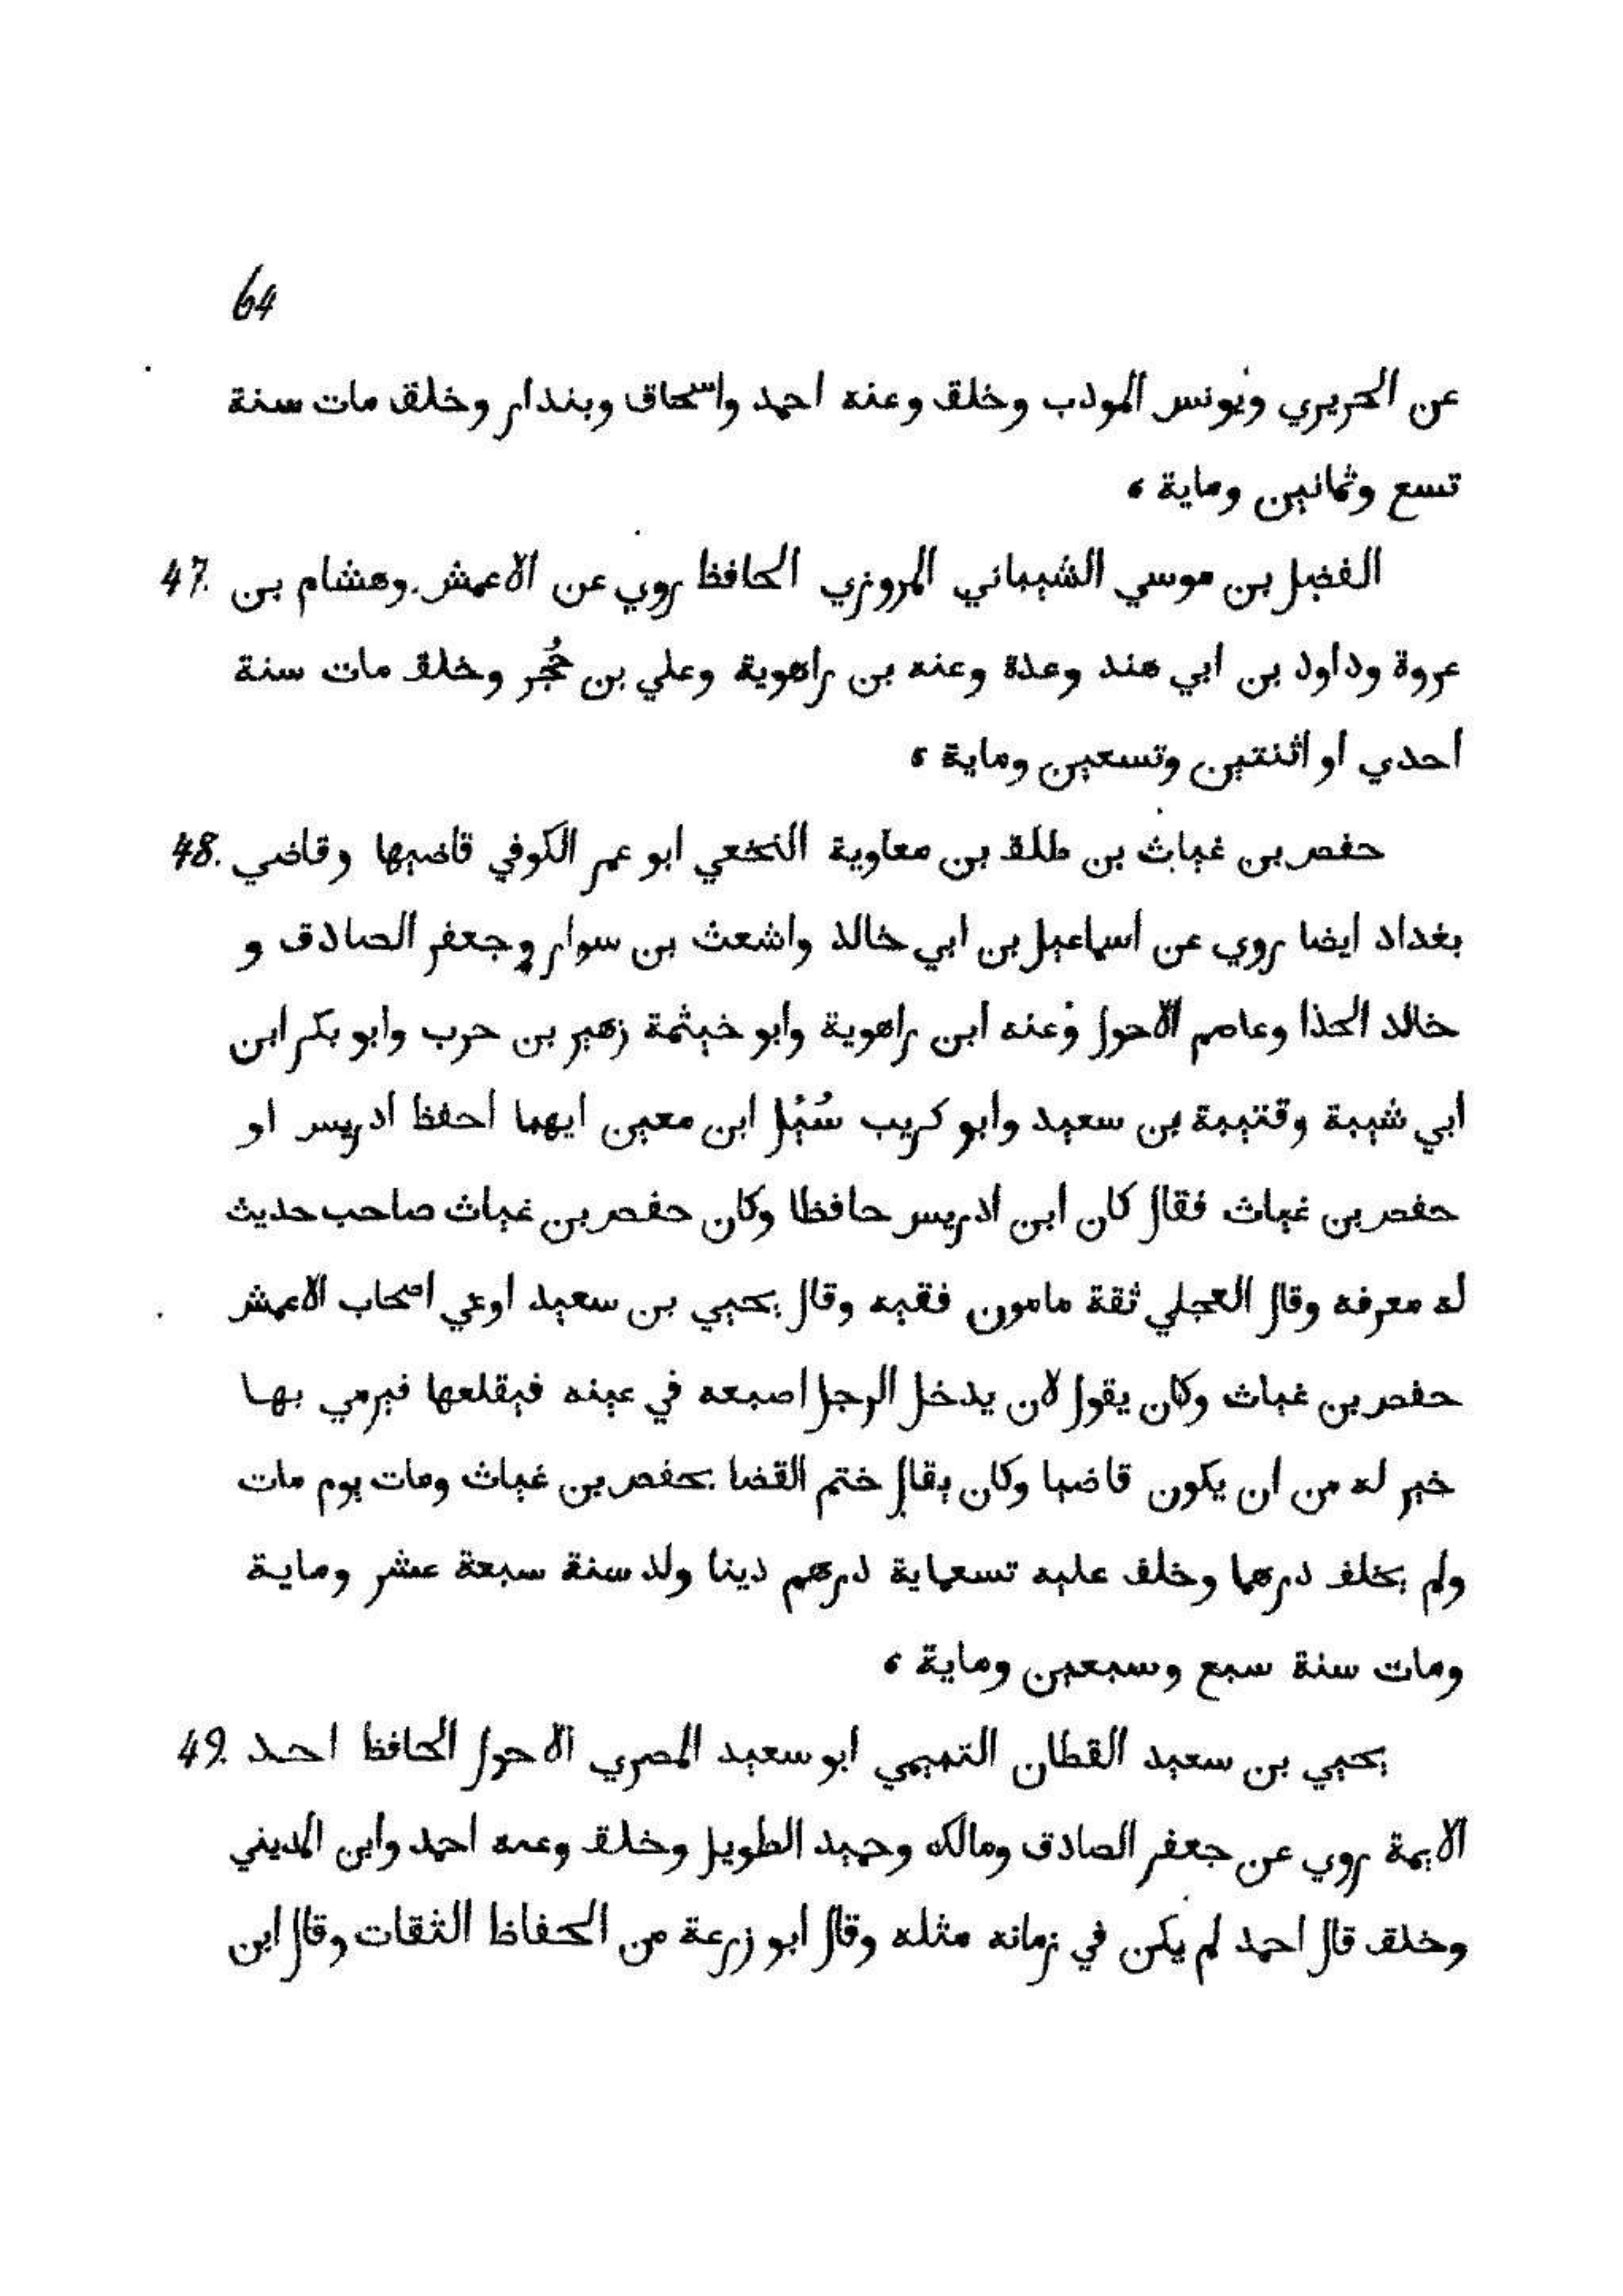 64
عن الحريري ويونس المودب وخلق وعنه احمد واسحاق وبندار وخلق مات سنة
تسع وثمانين وماية ،
47. الفضيل بن موسي الشيباني المروزي الحافظ روي عن الاعمش وهشام بن
عروة وداود بن ابي هند وعدة وعنه بن راهوية وعلي بن حُجر وخلق مات سنة
احدي او اثنتين وتسعين وماية ،
48. حفص بن غياث بن طلق بن معاوية النخعي ابو عمر الكوفي قاضيها وقاضي
بغداد ايضا روي عن اسماعيل بن ابي خالد واشعث بن سوار وجعفر الصادق و
خالد الحذا وعاصم الاحول وعنه ابن راهوية وابو خيثمة زهير بن حرب وابو بكر ابن
ابي شيبة وقتيبة بن سعيد وابو كريب سُئِل ابن معين ايهما احفظ ادريس او
حفص بن غياث فقال كان ابن ادريس حافظا وكان حفص بن غياث صاحب حديث
له معرفه وقال العجلي ثقة مامون فقيه وقال يحيي بن سعيد اوعي اصحاب الاعمش
حفص بن غياث وكان يقول لان يدخل الرجل اصبعه في عينه فيقلعها فيرمي بها
خير له من ان يكون قاضيا وكان يقال ختم القضا بحفص بن غياث ومات يوم مات
ولم يخلف درهما وخلف عليه تسعماية درهم دينا ولد سنة سبعة عشر وماية
ومات سنة سبع وسبعين وماية ،
49. يحيي بن سعيد القطان التميمي ابو سعيد المصري الاحول الحافظ احد
الايمة روي عن جعفر الصادق ومالك وحميد الطويل وخلق وعنه احمد وابن المديني
وخلق قال احمد لم يكن في زمانه مثله وقال ابو زرعة من الحفاظ الثقات وقال ابن